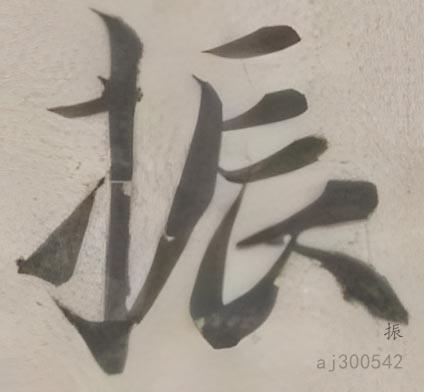 振
振
aj300542